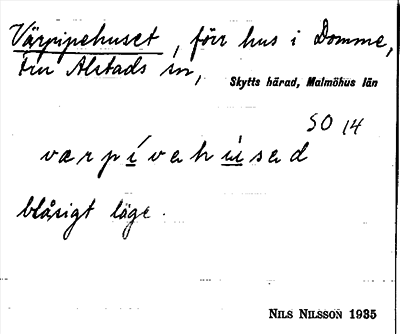 Värpipehuset, förr hus i Domme,
Alstads sn,
Skytts härad, Malmöhus län
SO 14
værpívahúsad
blåsigt läge.
NILS NILSSON 1935